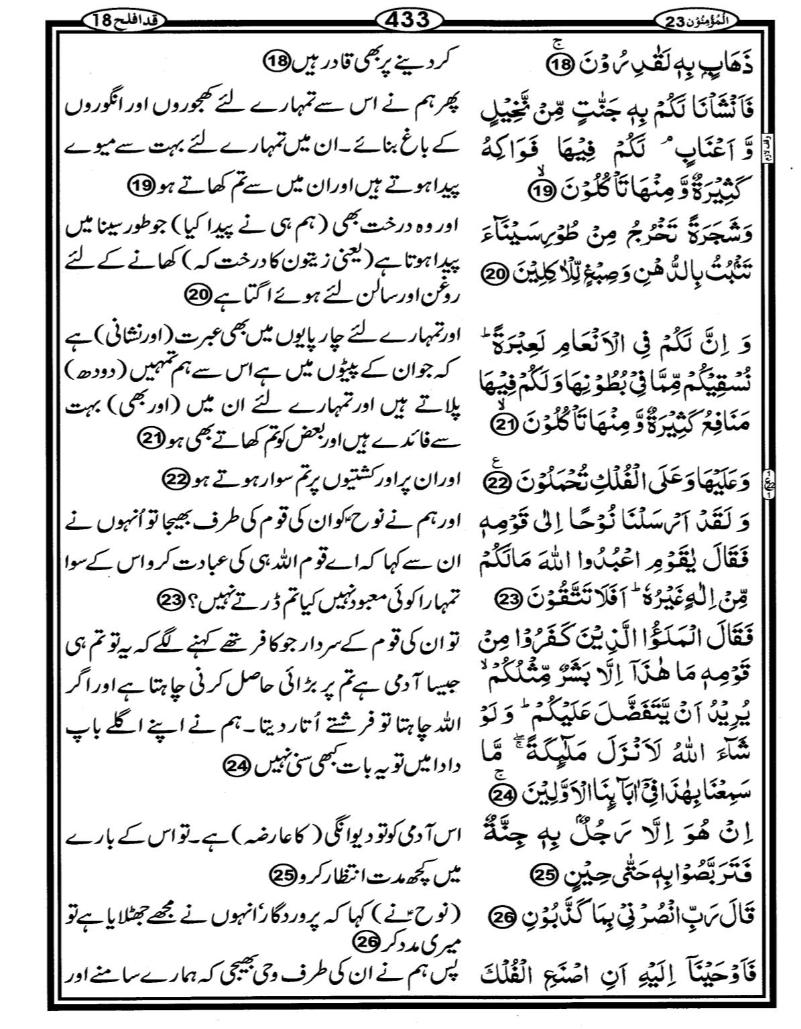 اَلْمُؤْمِنُوْن 23
433
قد افلح 18
ذَهَابٍۭ بِهٖ لَقٰدِرُوْنَ ۚ 18
فَاَنْشَاْنَا لَكُمْ بِهٖ جَنّٰتٍ مِّنْ نَّخِيْلٍ
وَّ اَعْنَابٍ ۘ لَكُمْ فِيْهَا فَوَاكِهُ
كَثِيْرَةٌ وَّ مِنْهَا تَاْكُلُوْنَ ۙ 19
وَشَجَرَةً تَخْرُجُ مِنْ طُوْرِ سَيْنَآءَ
تَنْۢبُتُ بِالدُّهْنِ وَصِبْغٍ لِّلْاٰكِلِيْنَ 20
وَ اِنَّ لَكُمْ فِى الْاَنْعَامِ لَعِبْرَةً ؕ
نُسْقِيْكُمْ مِّمَّا فِىْ بُطُوْنِهَا وَلَكُمْ فِيْهَا
مَنَافِعُ كَثِيْرَةٌ وَّ مِنْهَا تَاْكُلُوْنَ ۙ 21
وَعَلَيْهَا وَعَلَى الْفُلْكِ تُحْمَلُوْنَ ع 22
وَ لَقَدْ اَرْسَلْنَا نُوْحًا اِلٰى قَوْمِهٖ
فَقَالَ يٰقَوْمِ اعْبُدُوا اللّٰهَ مَا لَكُمْ
مِّنْ اِلٰهٍ غَيْرُهٗ ؕ اَفَلَا تَتَّقُوْنَ 23
فَقَالَ الْمَلَؤُا الَّذِيْنَ كَفَرُوْا مِنْ
قَوْمِهٖ مَا هٰذَاۤ اِلَّا بَشَرٌ مِّثْلُكُمْ ۙ
يُرِيْدُ اَنْ يَّتَفَضَّلَ عَلَيْكُمْ ؕ وَ لَوْ
شَآءَ اللّٰهُ لَاَنْزَلَ مَلٰٓئِكَةً ۖۚ مَّا
سَمِعْنَا بِهٰذَا فِىْۤ اٰبَآئِنَا الْاَوَّلِيْنَ ۚ 24
اِنْ هُوَ اِلَّا رَجُلٌۢ بِهٖ جِنَّةٌ
فَتَرَبَّصُوْا بِهٖ حَتّٰى حِيْنٍ 25
قَالَ رَبِّ انْصُرْنِىْ بِمَا كَذَّبُوْنِ 26
فَاَوْحَيْنَاۤ اِلَيْهِ اَنِ اصْنَعِ الْفُلْكَ
کر دینے پر بھی قادر ہیں 18
پھر ہم نے اس سے تمہارے لئے کھجوروں اور انگوروں
کے باغ بنائے۔ ان میں تمہارے لئے بہت سے میوے
پیدا ہوتے ہیں اور ان میں سے تم کھاتے ہو 19
اور وہ درخت بھی (ہم ہی نے پیدا کیا) جو طور سینا میں
پیدا ہوتا ہے (یعنی زیتون کا درخت کہ) کھانے کے لئے
روغن اور سالن لئے ہوئے اُگتا ہے 20
اور تمہارے لئے چارپایوں میں بھی عبرت (اور نشانی) ہے
کہ جو ان کے پیٹوں میں ہے اس سے ہم تمہیں (دودھ)
پلاتے ہیں اور تمہارے لئے ان میں (اور بھی) بہت
سے فائدے ہیں اور بعض کو تم کھاتے بھی ہو 21
اور ان پر اور کشتیوں پر تم سوار ہوتے ہو 22
اور ہم نے نوحؑ کو ان کی قوم کی طرف بھیجا تو اُنہوں نے
ان سے کہا کہ اے قوم اللہ ہی کی عبادت کرو اس کے سوا
تمہارا کوئی معبود نہیں کیا تم ڈرتے نہیں؟ 23
تو ان کی قوم کے سردار جو کافر تھے کہنے لگے کہ یہ تو تم ہی
جیسا آدمی ہے تم پر بڑائی حاصل کرنی چاہتا ہے اور اگر
اللہ چاہتا تو فرشتے اُتار دیتا۔ ہم نے اپنے اگلے باپ
دادا میں تو یہ بات کبھی سنی نہیں 24
اس آدمی کو تو دیوانگی (کا عارضہ) ہے۔ تو اس کے بارے
میں کچھ مدت انتظار کرو 25
(نوحؑ نے) کہا کہ پروردگار اُنہوں نے مجھے جھٹلایا ہے تو
میری مدد کر 26
پس ہم نے ان کی طرف وحی بھیجی کہ ہمارے سامنے اور